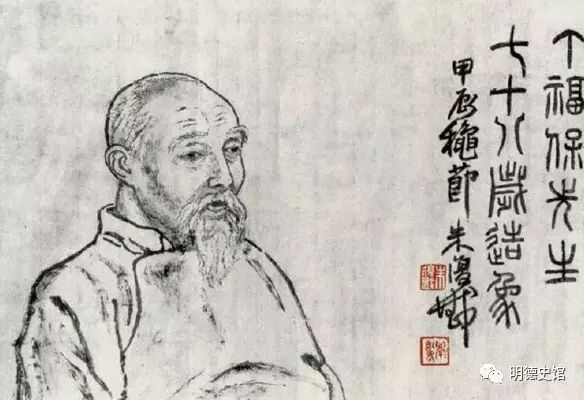 丁福保先生
七十八歲造象
甲辰穐節 朱復戡
明德史馆